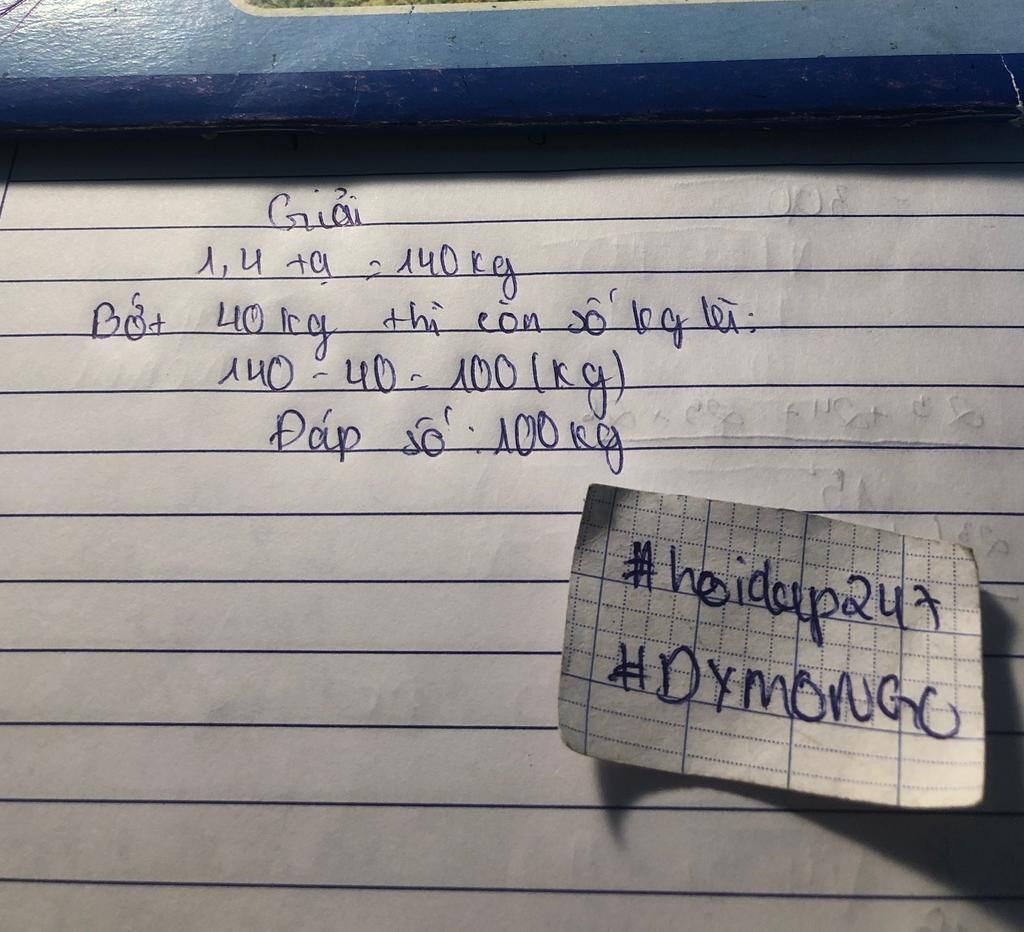 Giải
1,4 tạ = 140kg
Bớt 40kg thì còn số kg là:
140 - 40 = 100 (kg)
Đáp số : 100kg
#hoidap247
#DYMONGO